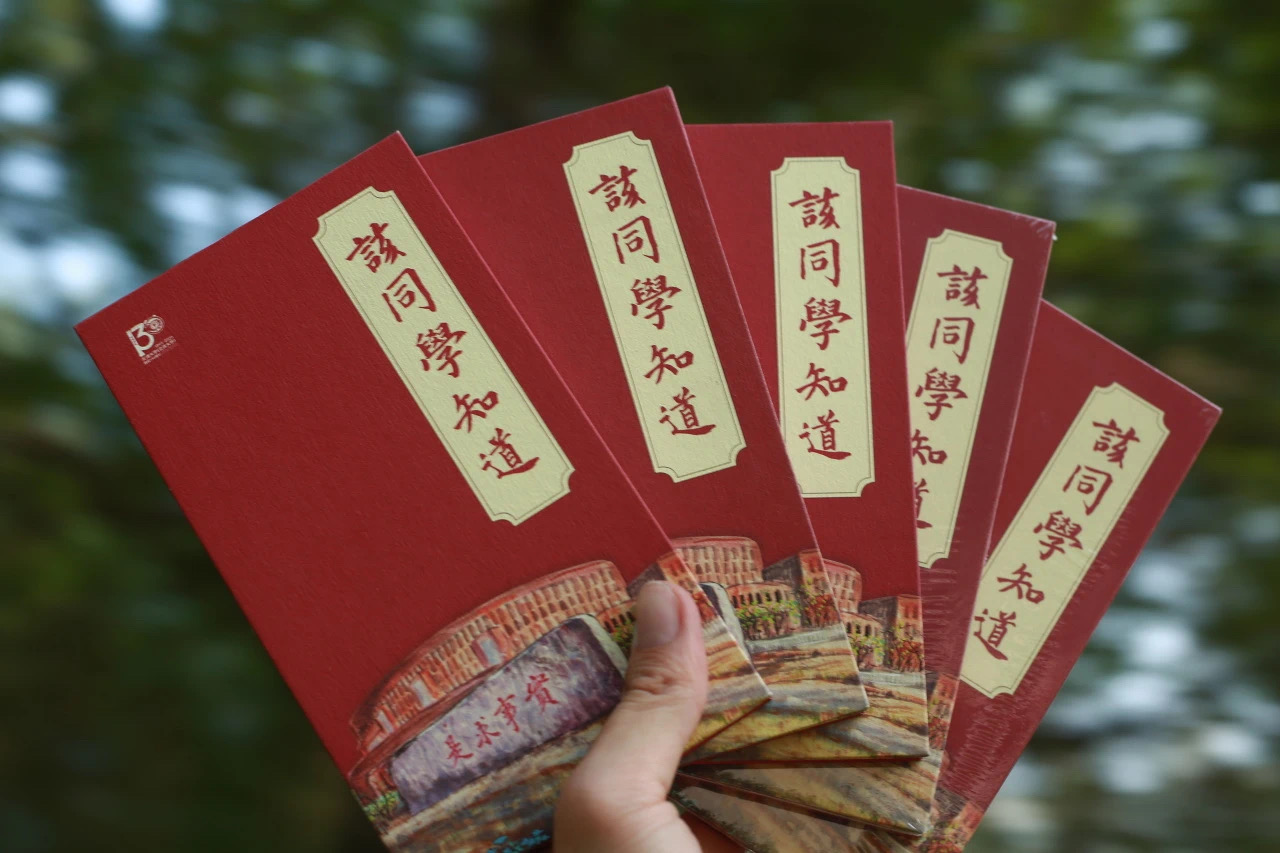 該同學知道
該同學知道
該同學知道
該同學知道
該同學知道
130
是求事實